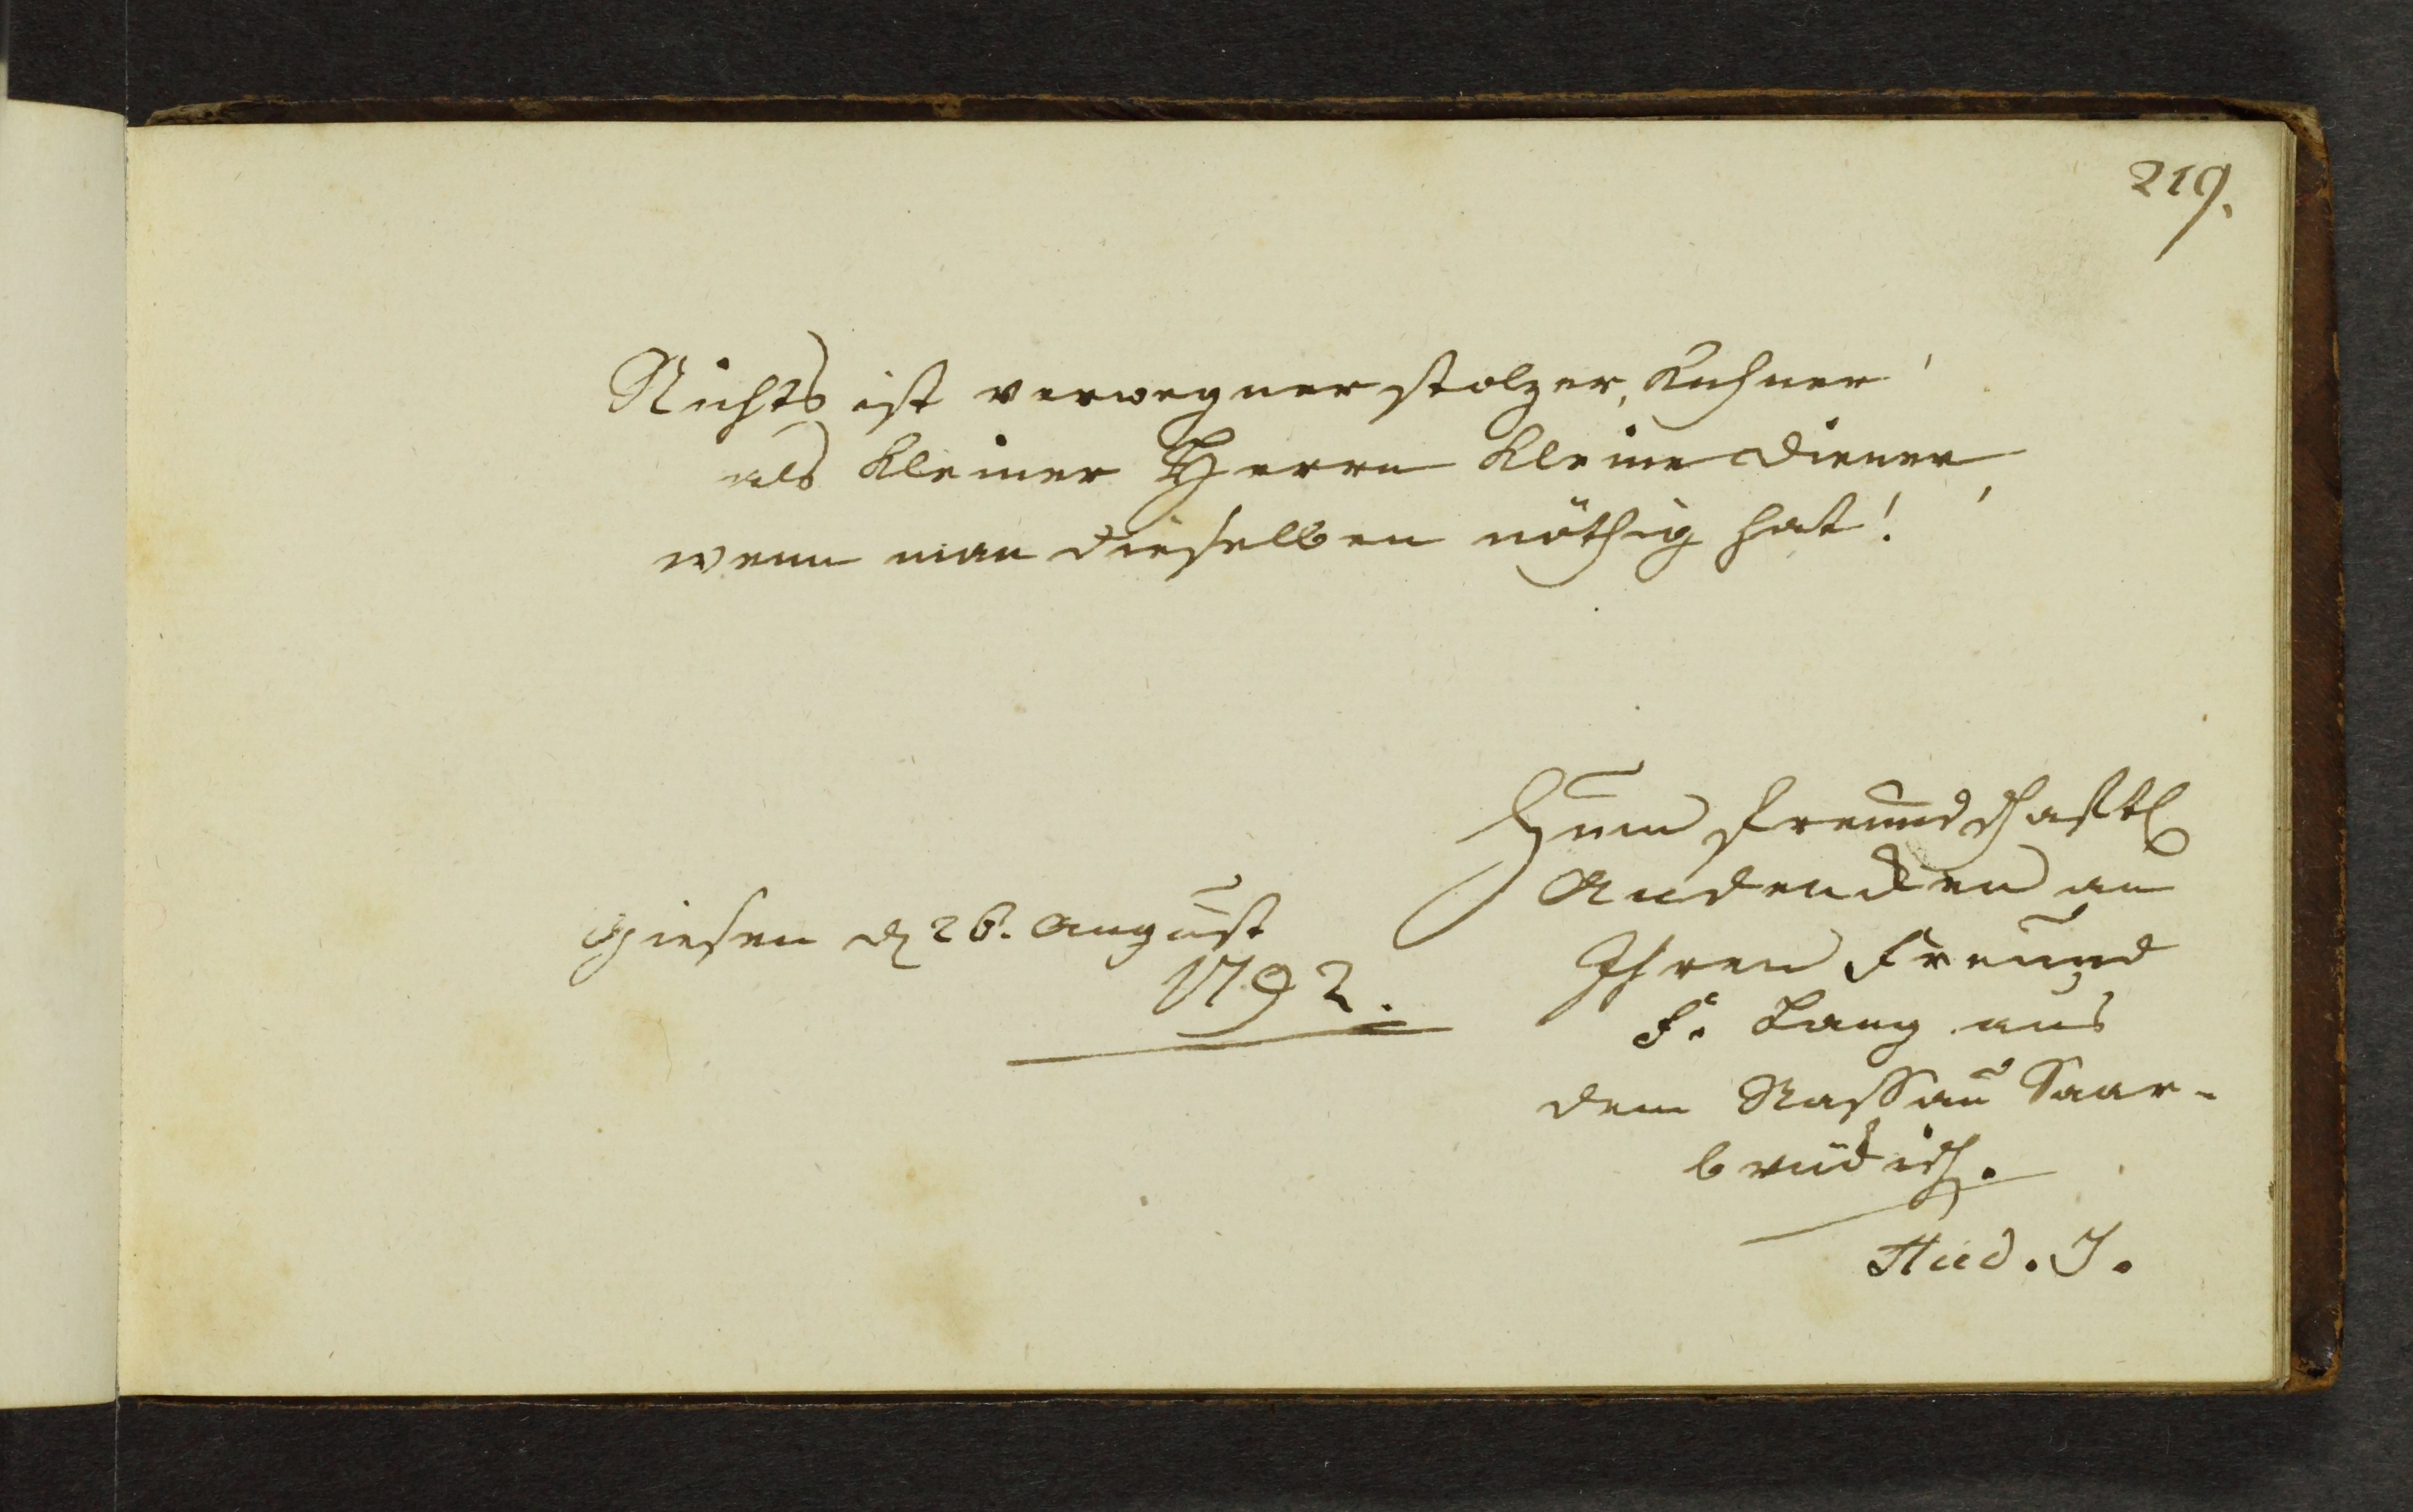 219.
Nichts ist verwegner stolzer, Kuhner!
als Kleiner Herrn Kleine diener,
wenn man dieselben nöthig hat!
Zum freundschaftl
Andencken an
Ihren Freund
F. Lang aus
dem Nassau Saar-
brückisch.
Stud. J.
Giesen d 26. August
1792.